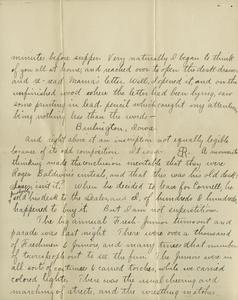 minutes before supper. Very naturally I began to think
of you all at home, and reached over to open the desk drawer
and re-read Mama's letter. Well, I opened it, and on the
unfinished wood where the letter had been lying, saw
some printing in lead pencil which caught my attention,
being nothing less than the words—
Burlington, Iowa.
And right above it an inscription not equally legible
because of its odd composition. A moments
thinking made the conclusion inevitable that they were
Roger Baldwin's initials, and that this was his old desk!
When he decided to leave for Cornell, he
sold his desk to the dealer, and of hundreds & hundreds
I happened to buy it. But I am not superstitious.
The big annual Fresh-Junior turnout and
parade was last night. There were over a thousand
of Freshmen & Juniors, and many times that number
of townspeople out to see the fun. The Juniors were in
all sorts of costumes & carried torches, while we carried
colored lights. There was the usual cheering and
marching of streets, and the wrestling matches